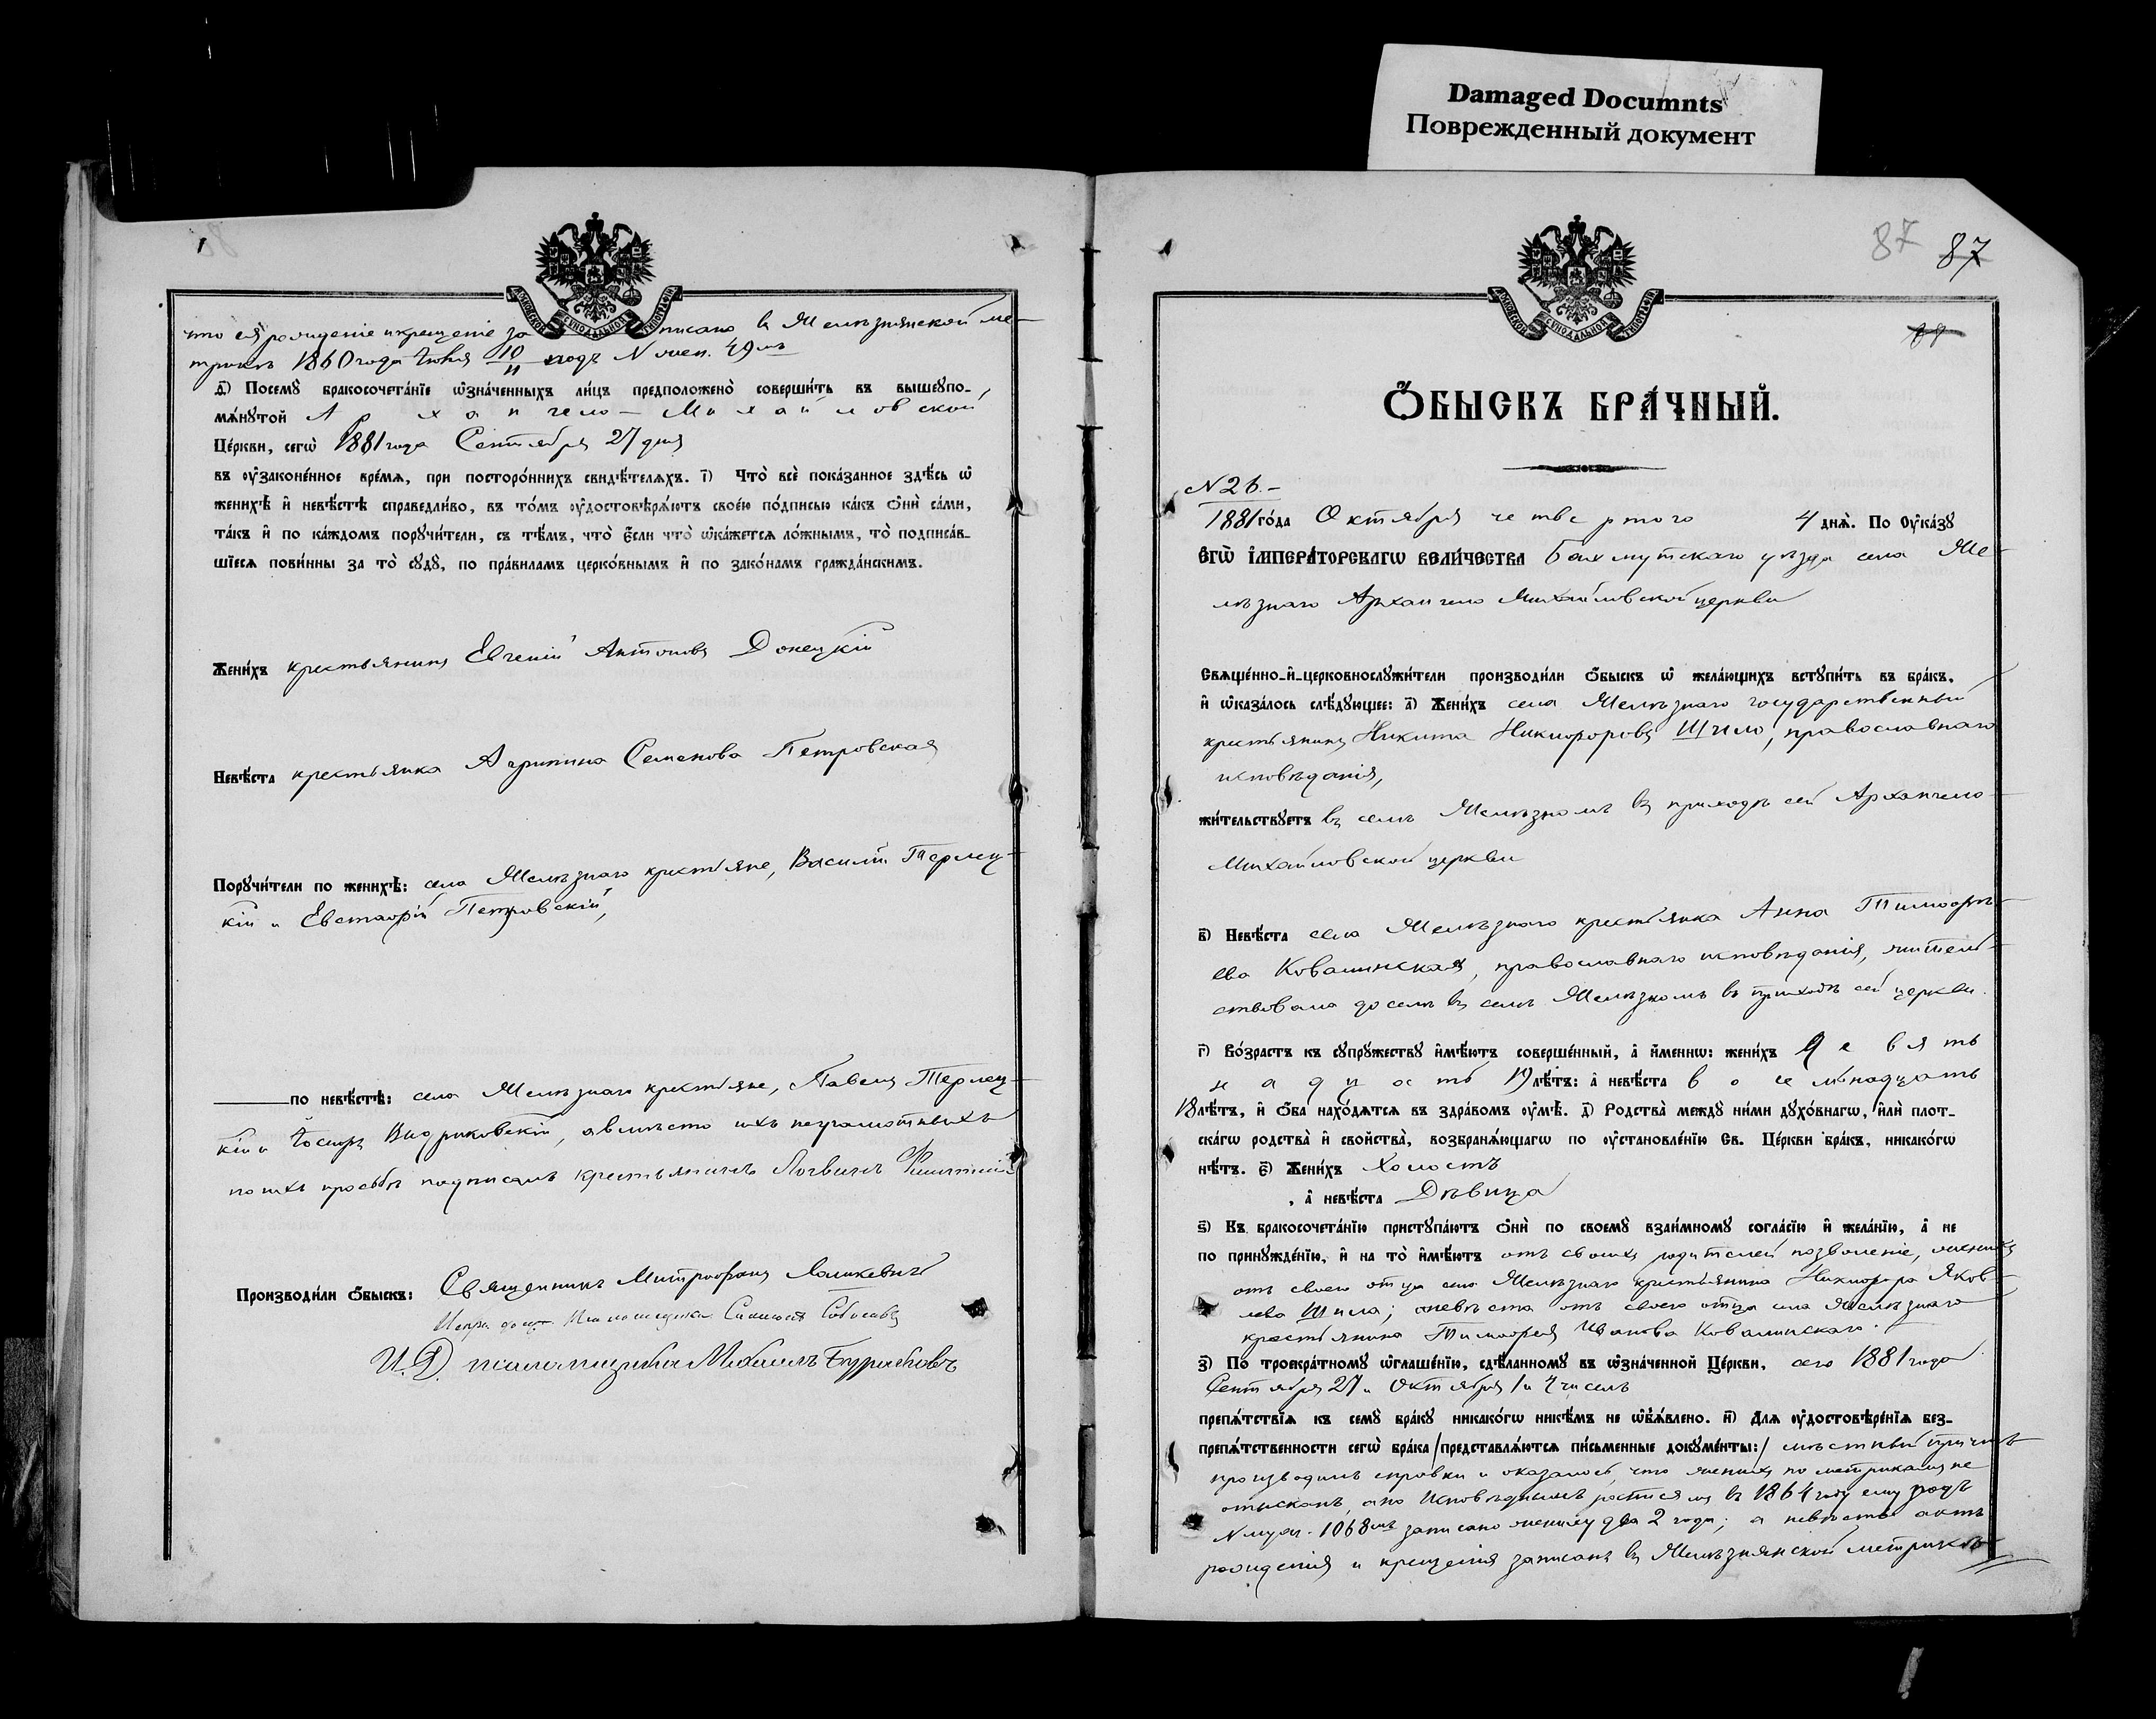 Damaged Documnts
Поврежденный документ
МОСКОВСКОЙ СѴНОДАЛЬНОЙ ТИПОГРАФІИ
что ея рожденіе и крещеніе записано въ Желѣзнянской ме-
трикѣ 1860 года Іюня 10/11 подъ № жен. 49мъ
д҃) Посемꙋ̀ бракосочета́нїе ѡ҆зна́ченныхъ ли́цъ предположено̀ соверши́ть въ вышеꙋпо-
мѧ́нꙋтой Архангело-Михайловской
Це́ркви, сегѡ̀ 1881 года Сентября 27 дня
въ ᲂу҆законе́нное вре́мѧ, при посторо́ннихъ свидѣ́телѧхъ. і҃) Что̀ всѐ пока́занное здѣ́сь ѡ҆
женихѣ̀ и҆ невѣ́стѣ справедли́во, въ то́мъ ᲂу҆достовѣрѧ́ютъ свое́ю по́дписью ка́къ ѻ҆нѝ са́ми,
та́къ и҆ по ка́ждомъ порꙋчи́тели, съ тѣ́мъ, что̀ є҆́сли что̀ ѡ҆ка́жетсѧ ло́жнымъ, то̀ подписа́в-
шїесѧ пови́нны за то̀ сꙋдꙋ̀, по пра́виламъ церко́внымъ и҆ по зако́намъ гражда́нскимъ.
Жени́хъ крестьянинъ Евгеній Антоновъ Донецкій
Невѣ́ста крестьянка Агрипина Семенова Петровская
Порꙋчи́тели по женихѣ̀: села Желѣзнаго крестьяне, Василій Терлец-
кій и Евстафій Петровскій,
по невѣ́стѣ: села Желѣзнаго крестьяне, Павелъ Терлец-
кій и Іосифъ, а вмѣсто ихъ неграмотныхъ
по ихъ просьбѣ подписалъ крестьянинъ
Производи́ли ѻ҆́быскъ: Священникъ Митрофанъ
И. Д. псаломщика Михаилъ
87 87
Ѻ҆́БЫСКЪ БРА́ЧНЫЙ.
N 26.-
1881 го́да Октября четвертаго 4 днѧ̀. По Оу҆ка́зꙋ
ЕГѠ̀ І҆МПЕРА́ТОРСКАГѠ ВЕЛИ́ЧЕСТВА Бахмутскаго уѣзда села Же-
лѣзнаго Архангело Михайловской церкви
Свѧще́нно-и҆-церковнослꙋжи́тели производи́ли ѻ҆́быскъ ѡ҆ жела́ющихъ встꙋпи́ть въ бра́къ,
и҆ ѡ҆каза́лось слѣ́дꙋющее: а҃) Жени́хъ села Желѣзнаго государственный
крестьянинъ Никита Никифоровъ Шило, православнаго
исповѣданія,
жи́тельствꙋетъ въ селѣ Желѣзномъ въ приходѣ сей Архангело-
Михайловской церкви
в҃) Невѣ́ста села Желѣзнаго крестьянка Анна Тимофѣ-
ева Ковалинская, православнаго исповѣданія, житель-
ствовала доселѣ въ селѣ Желѣзномъ въ приходѣ сей церкви.
г҃) Во́зрастъ къ сꙋпрꙋ́жествꙋ и҆мѣ́ютъ соверше́нный, а҆ и҆́меннѡ: жени́хъ Девять
надцать 19 лѣ́тъ: а҆ невѣ́ста восемьнадцать
18 лѣ́тъ, и҆ ѻ҆́ба нахо́дѧтсѧ въ здра́вомъ ᲂу҆мѣ̀. д҃) Родства̀ междꙋ̀ ни́ми дꙋхо́внагѡ, и҆лѝ плот-
ска́гѡ родства̀ и҆ свойства̀, возбранѧ́ющагѡ по ᲂу҆становле́нїю Св. Це́ркви бра́къ, никако́гѡ
нѣ́тъ. є҃) Жени́хъ холостъ
, а҆ невѣ́ста Дѣвица
ѕ҃) Къ бракосочета́нїю пристꙋпа́ютъ ѻ҆нѝ по своемꙋ̀ взаи́мномꙋ согла́сїю и҆ жела́нїю, а҆ не
по принꙋжде́нїю, и҆ на то̀ и҆мѣ́ютъ отъ своихъ родителей позволеніе, женихъ
отъ своего отца села Желѣзнаго крестьянина Никифора Яков-
лева Шила; а невѣста отъ своего отца села Желѣзнаго
крестьянина Тимофея Иванова Ковалинскаго.
з҃) По троекра́тномꙋ ѡ҆глаше́нїю, сдѣ́ланномꙋ въ ѡ҆зна́ченной Це́ркви, сего 1881 года
Сентября 27 и Октября 1 и 4 чиселъ
препѧ́тствїѧ къ семꙋ̀ бра́кꙋ никако́гѡ никѣ́мъ не ѡ҆б̾ѧ́влено. и҃) Длѧ ᲂу҆достовѣре́нїѧ без-
препѧ́тственности сегѡ̀ бра́ка /представлѧ́ютсѧ пи́сьменные докꙋме́нты:/ мѣстный причтъ
производилъ справки и оказалось, что женихъ по метрикамъ не
отысканъ, а по Исповѣднымъ росписямъ въ 1864 году подъ
N муж. 1068мъ записано жениху два 2 года; а невѣсты актъ
рожденія и крещенія записанъ въ Желѣзнянской метрикѣ